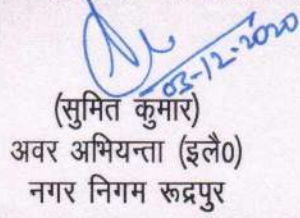 03-12-2020
(सुमित कुमार)
अवर अभियन्ता (इलै0)
नगर निगम रूद्रपुर